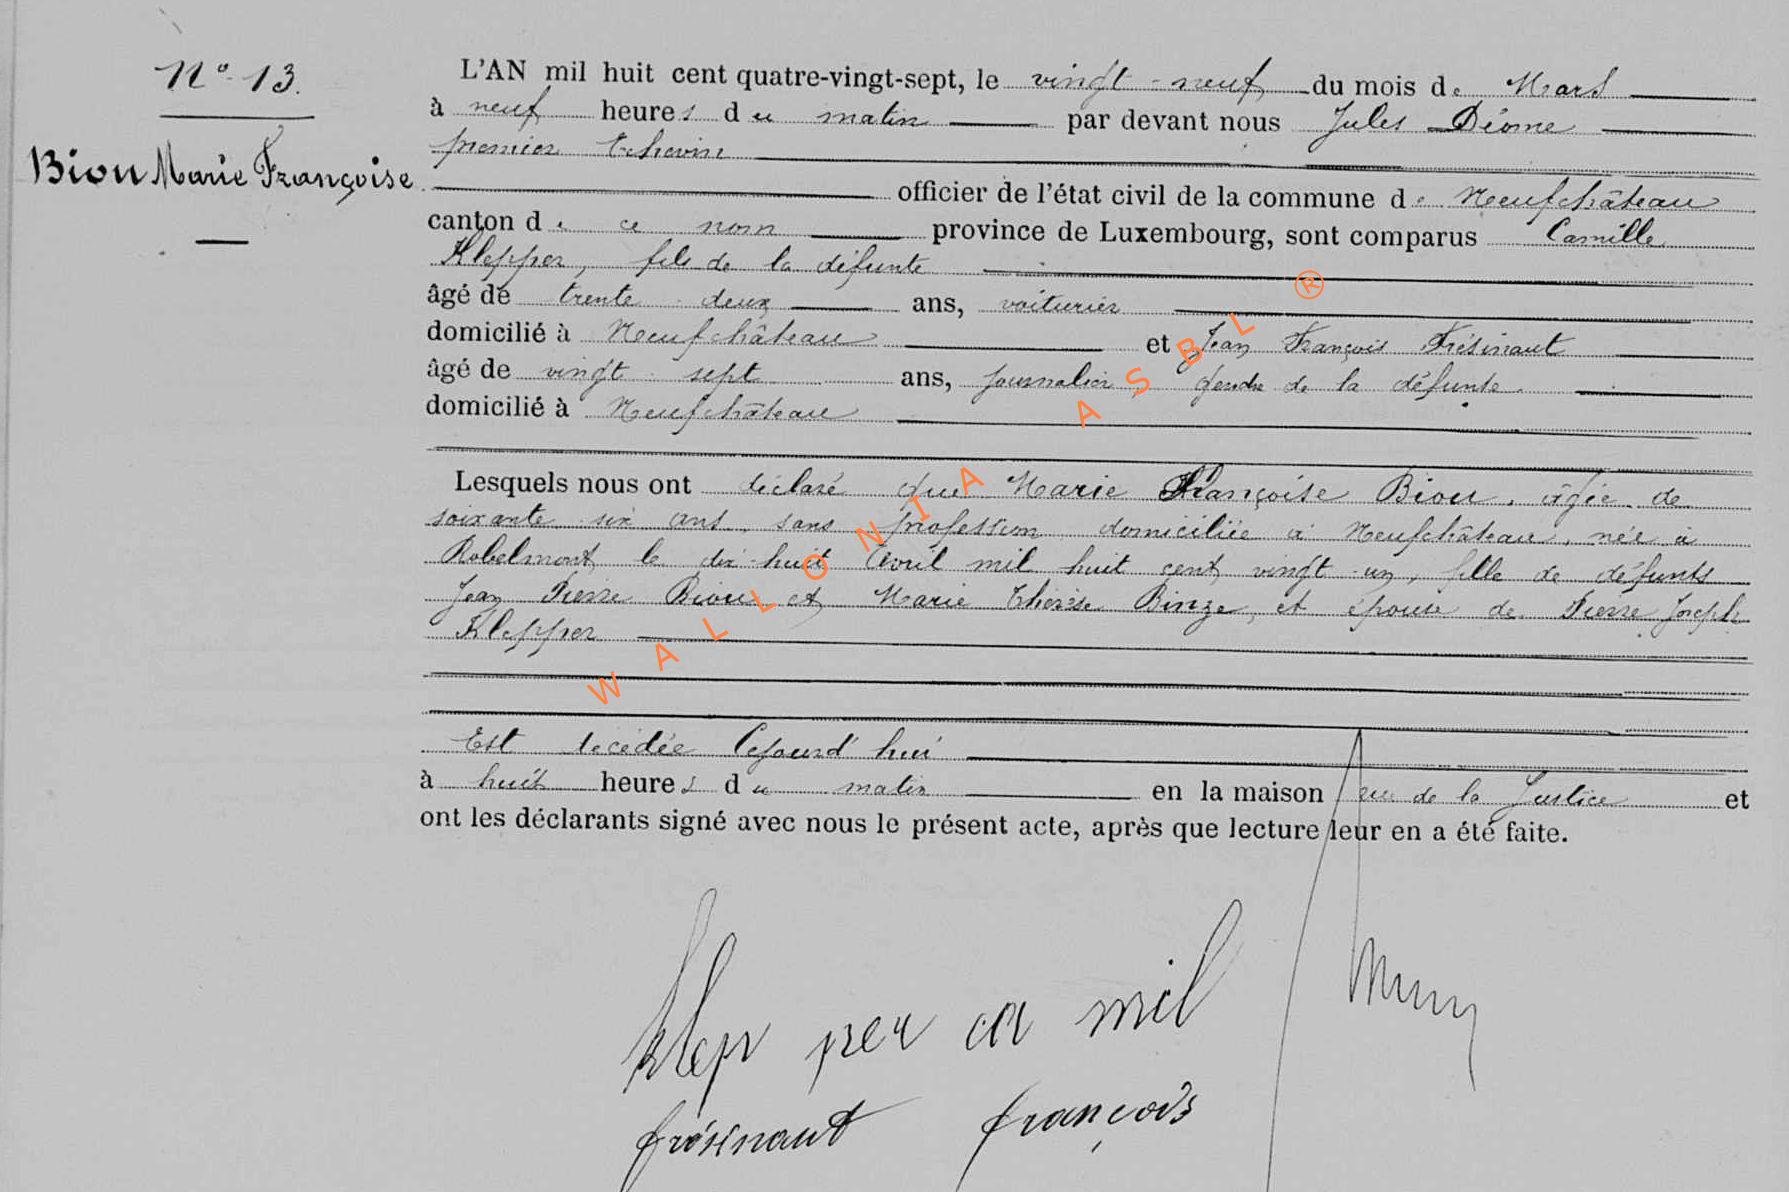 N° 13.
Biou Marie Françoise
L'AN mil huit cent quatre-vingt-sept, le vingt-neuf du mois de Mars
à neuf heures du matin par devant nous Jules Diome
premier Echevin
officier de l'état civil de la commune de Neufchâteau
canton de ce nom province de Luxembourg, sont comparus Camille
Klepper, fils de la défunte
âgé de trente-deux ans, voiturier
domicilié à Neufchâteau et Jean François Frésinaut
âgé de vingt-sept ans, journalier, gendre de la défunte
domicilié à Neufchâteau
Lesquels nous ont déclaré que Marie Françoise Biou, âgée de
soixante-six ans, sans profession domiciliée à Neufchâteau, née à
Robelmont le dix-huit Avril mil huit cent vingt-un, fille de défunts
Jean Pierre Biou et Marie Thérèse Binze, et épouse de Pierre Joseph
Klepper
Est décédée Cejourd'hui
à huit heures du matin en la maison rue de la Justice et
ont les déclarants signé avec nous le présent acte, après que lecture leur en a été faite.
Klep per ca mil
frésinaut françois
WALLONIA ASBL ®